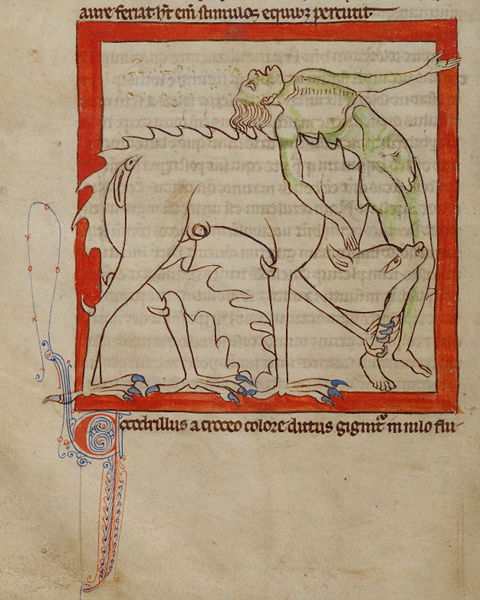 aure feriat hȳt em̄ stimulos equibꝫ percutit
Cocodrillus a croceo colore dictus gigint᷑ in nilo flu-